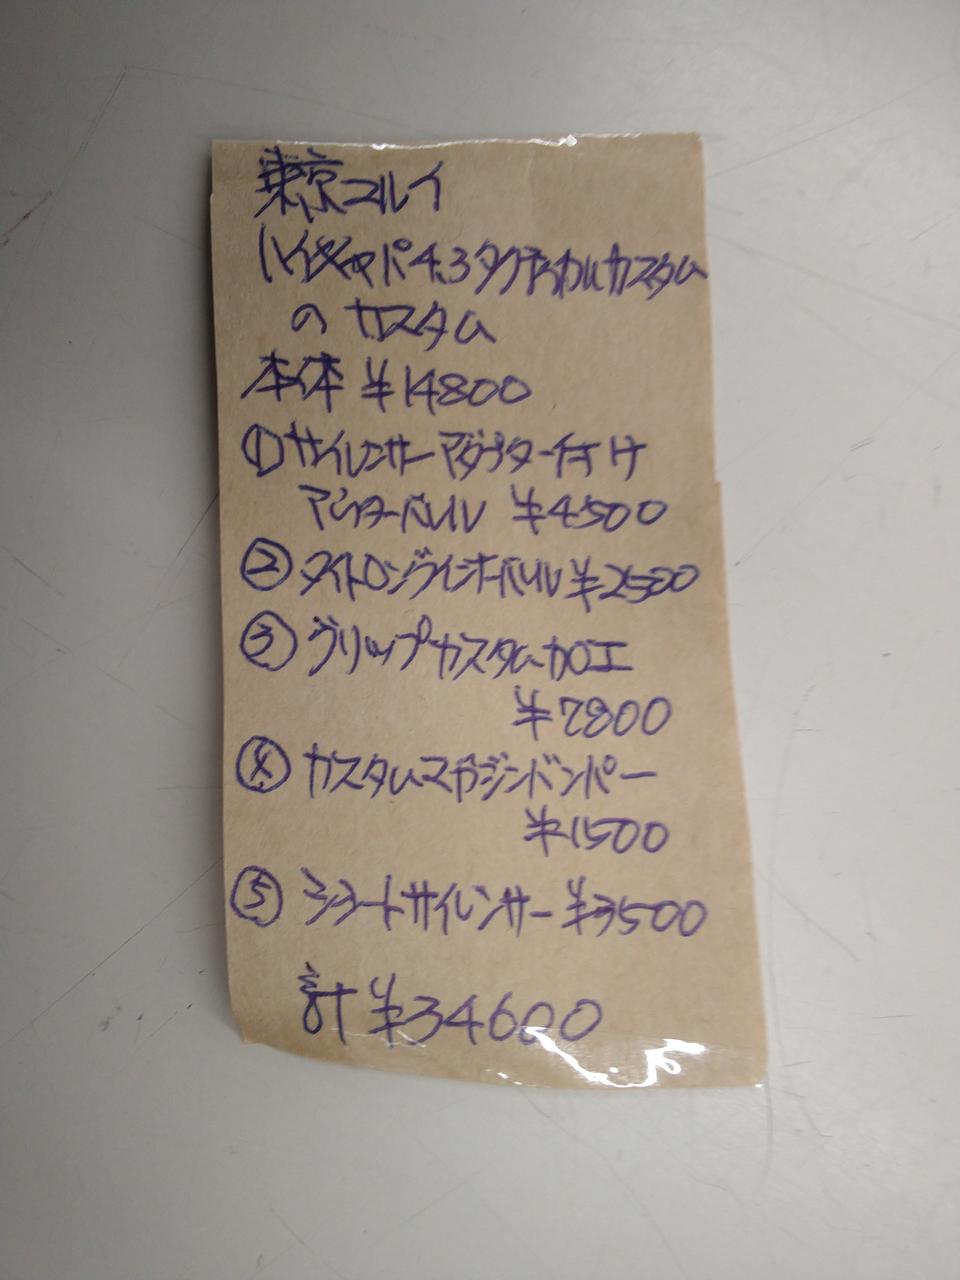 東京マルイ
ハイキャパ4.3タクティカルカスタム
のカスタム
本体 ¥14800
①サイレンサーアダプター付け
アウターバレル ¥4500
② タイトロングインナーバレル ¥2500
③ グリップカスタム加工
¥7800
④ カスタムマガジンバンパー
¥1500
⑤ ショートサイレンサー ¥3500
計 ¥34600